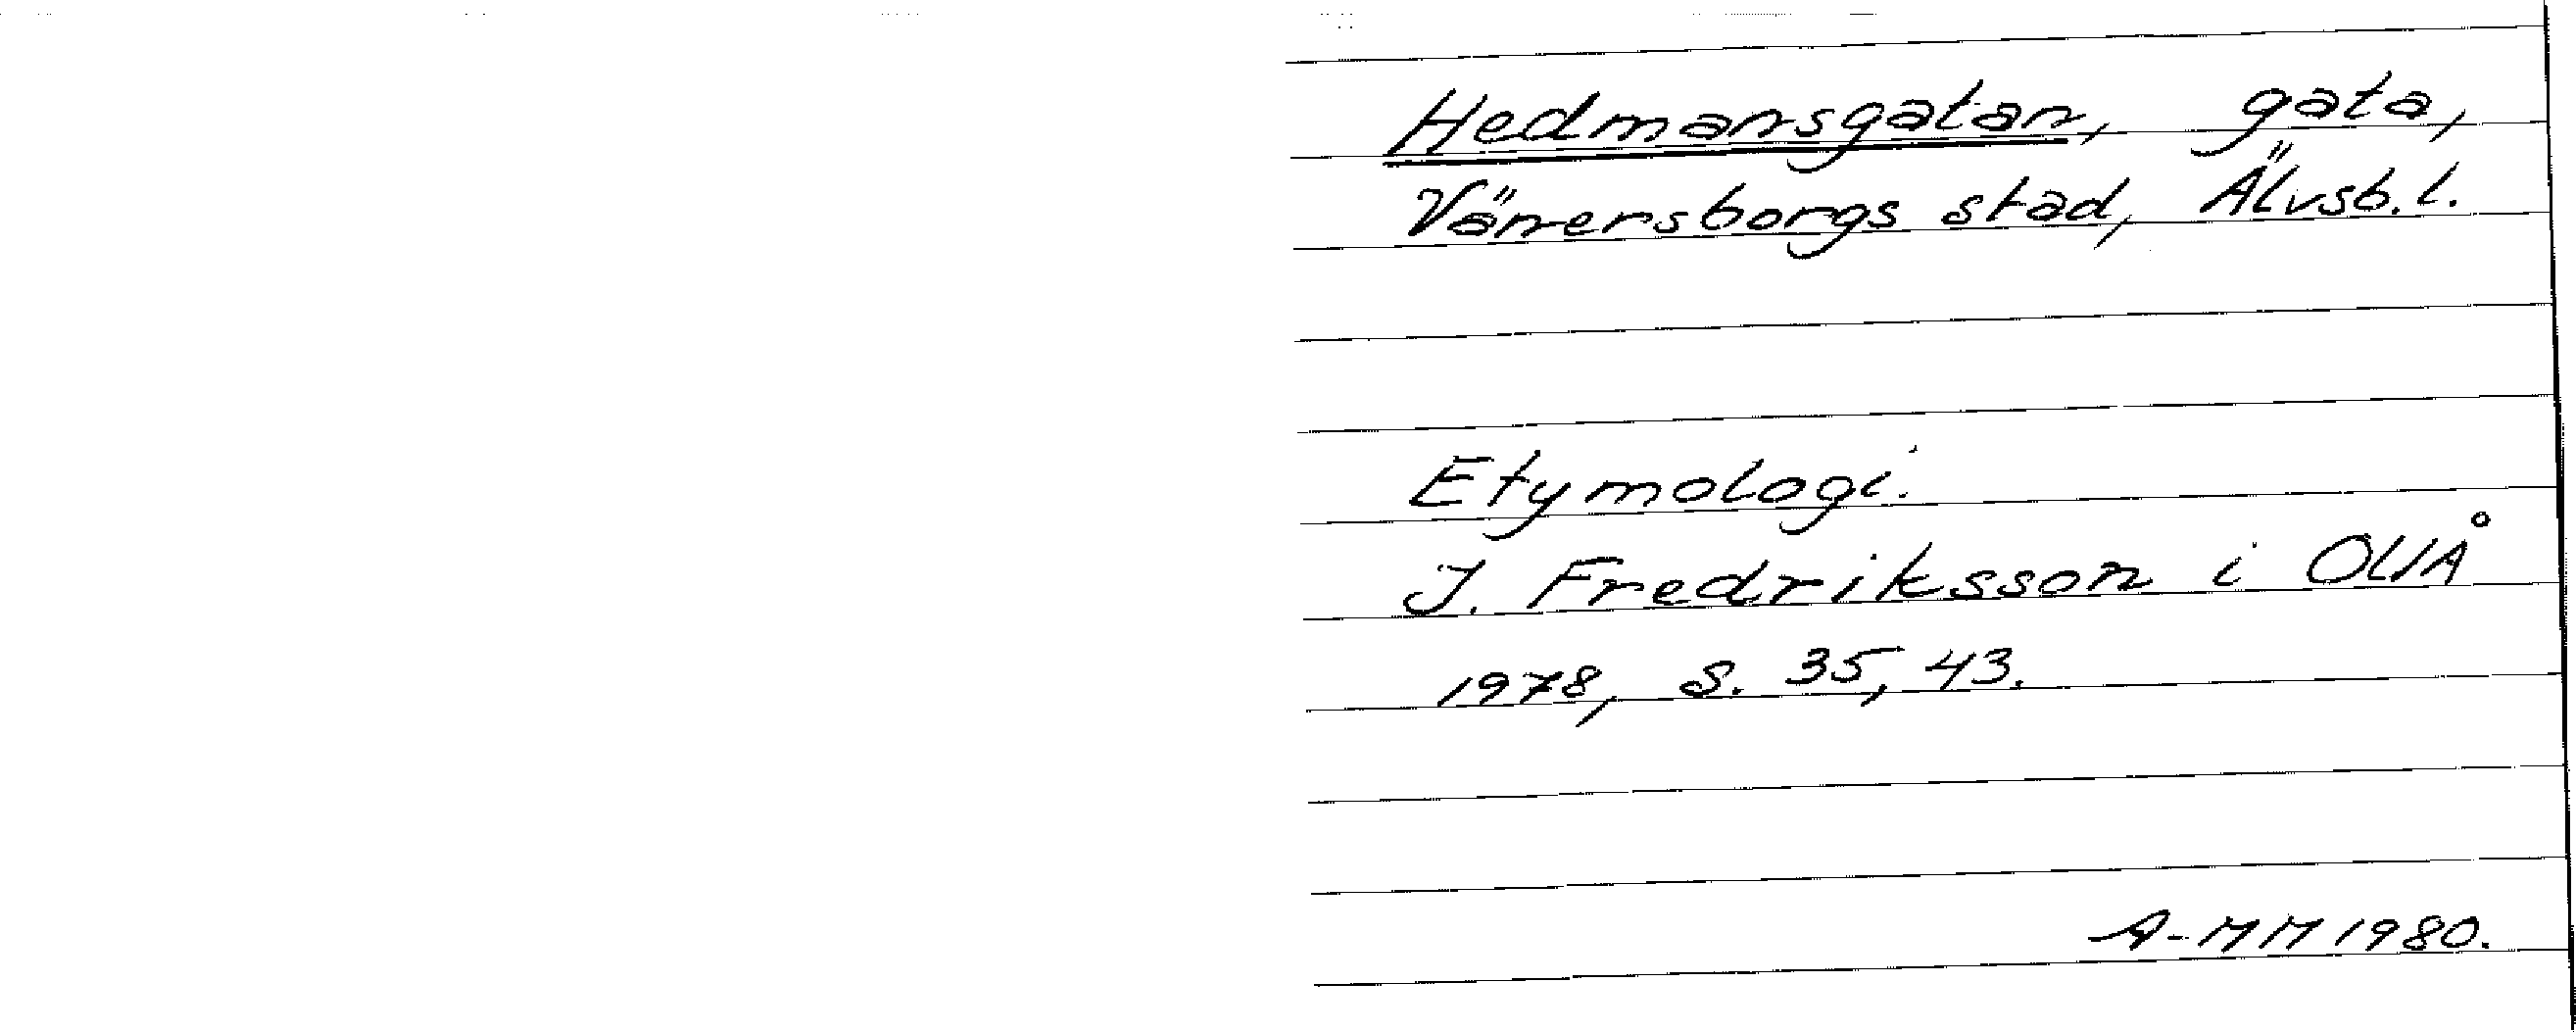 Hedmansgatan, gata,
Vänersborgs stad, Älvsb. l.
Etymologi.
J. Fredriksson i OUÅ
1978, s. 35, 43.
A-MM 1980.